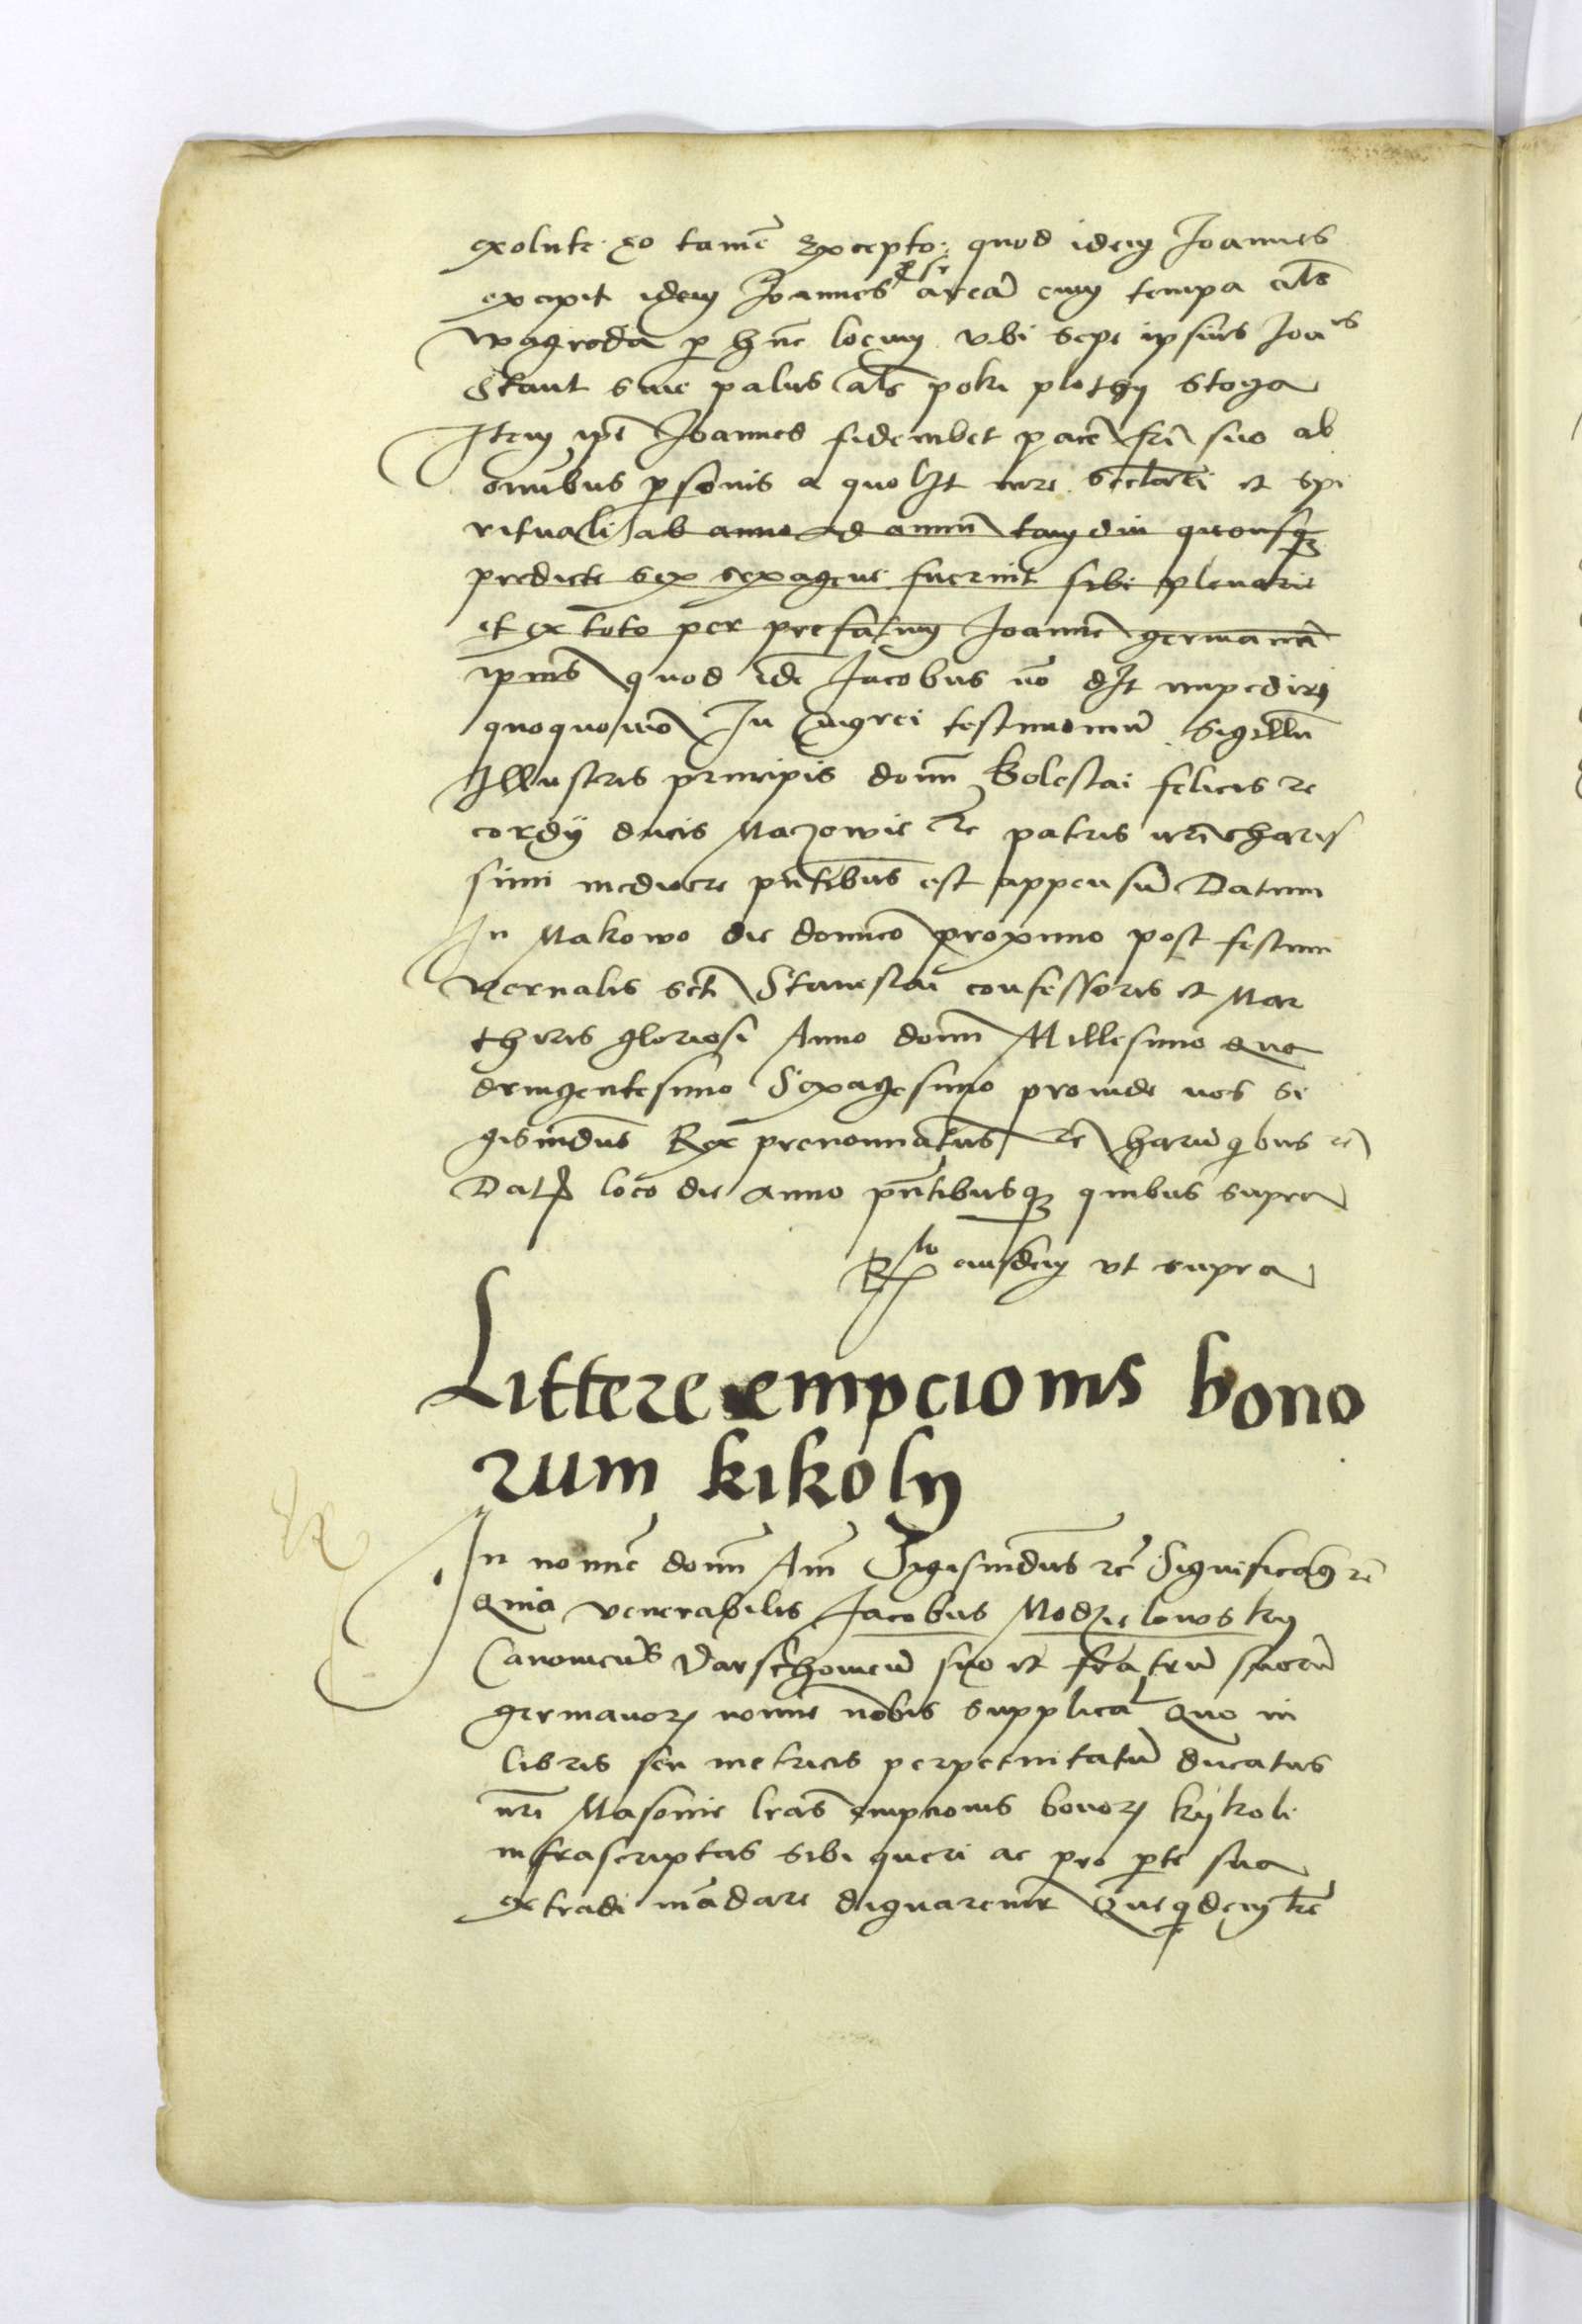 exolute eo tamē excepto quod idem Joannes
excipit idem Joannes p se areā cum tempa als
wagroda p hnc locum vbi sepe ipsius Joānis
stant siue palus als poki plothy stoga
Item ipē Joannes fideiubet pacē fri suo ab
omībus psonis a quolibt iure seclari et spi
rituali ab anno ad annū tam diu quousq3
predicte sex sexagene fuerint sibi plenarie
et ex toto per prefatum Joannē germanū
ipius quod idē Jacobus nō dbt impedire
quoquomō In cuius rei testimoniū Sigillū
Illustris principis domī Boleslai felicis re
cordy ducis Mazowie etc patris nrī charis
simi mediocre pntibus est appensū Datum
In Makowo die domīco proximo post festum
vernalis sctī Stanislai confessoris et Mar
thiris gloriosi Anno domī Millesimo qua
dringentesimo Sexagesimo proinde nos Si
gismdus Rex prenomīatus etc harū qibus etc
Dat loco die anno pntibusq3 quibus supra
Rlo eiusdem vt supra
Littere empcionis bono
rum kikoly
In nomīe domī Am Sigismdus etc Significamus etc
Quia venerabilis Jacobus Modzielowsky
Canonicus Varschouieñ suo et fratrū suorū
germanor nomīe nobis supplicat Quo in
libris seu metricis perpetuitatū ducatus
nrī Masouie lrās empcionis bonor kykoli
infrascriptas sibi queri ac pro pte sua
extradi mādare dignaremur Que qidem lrē